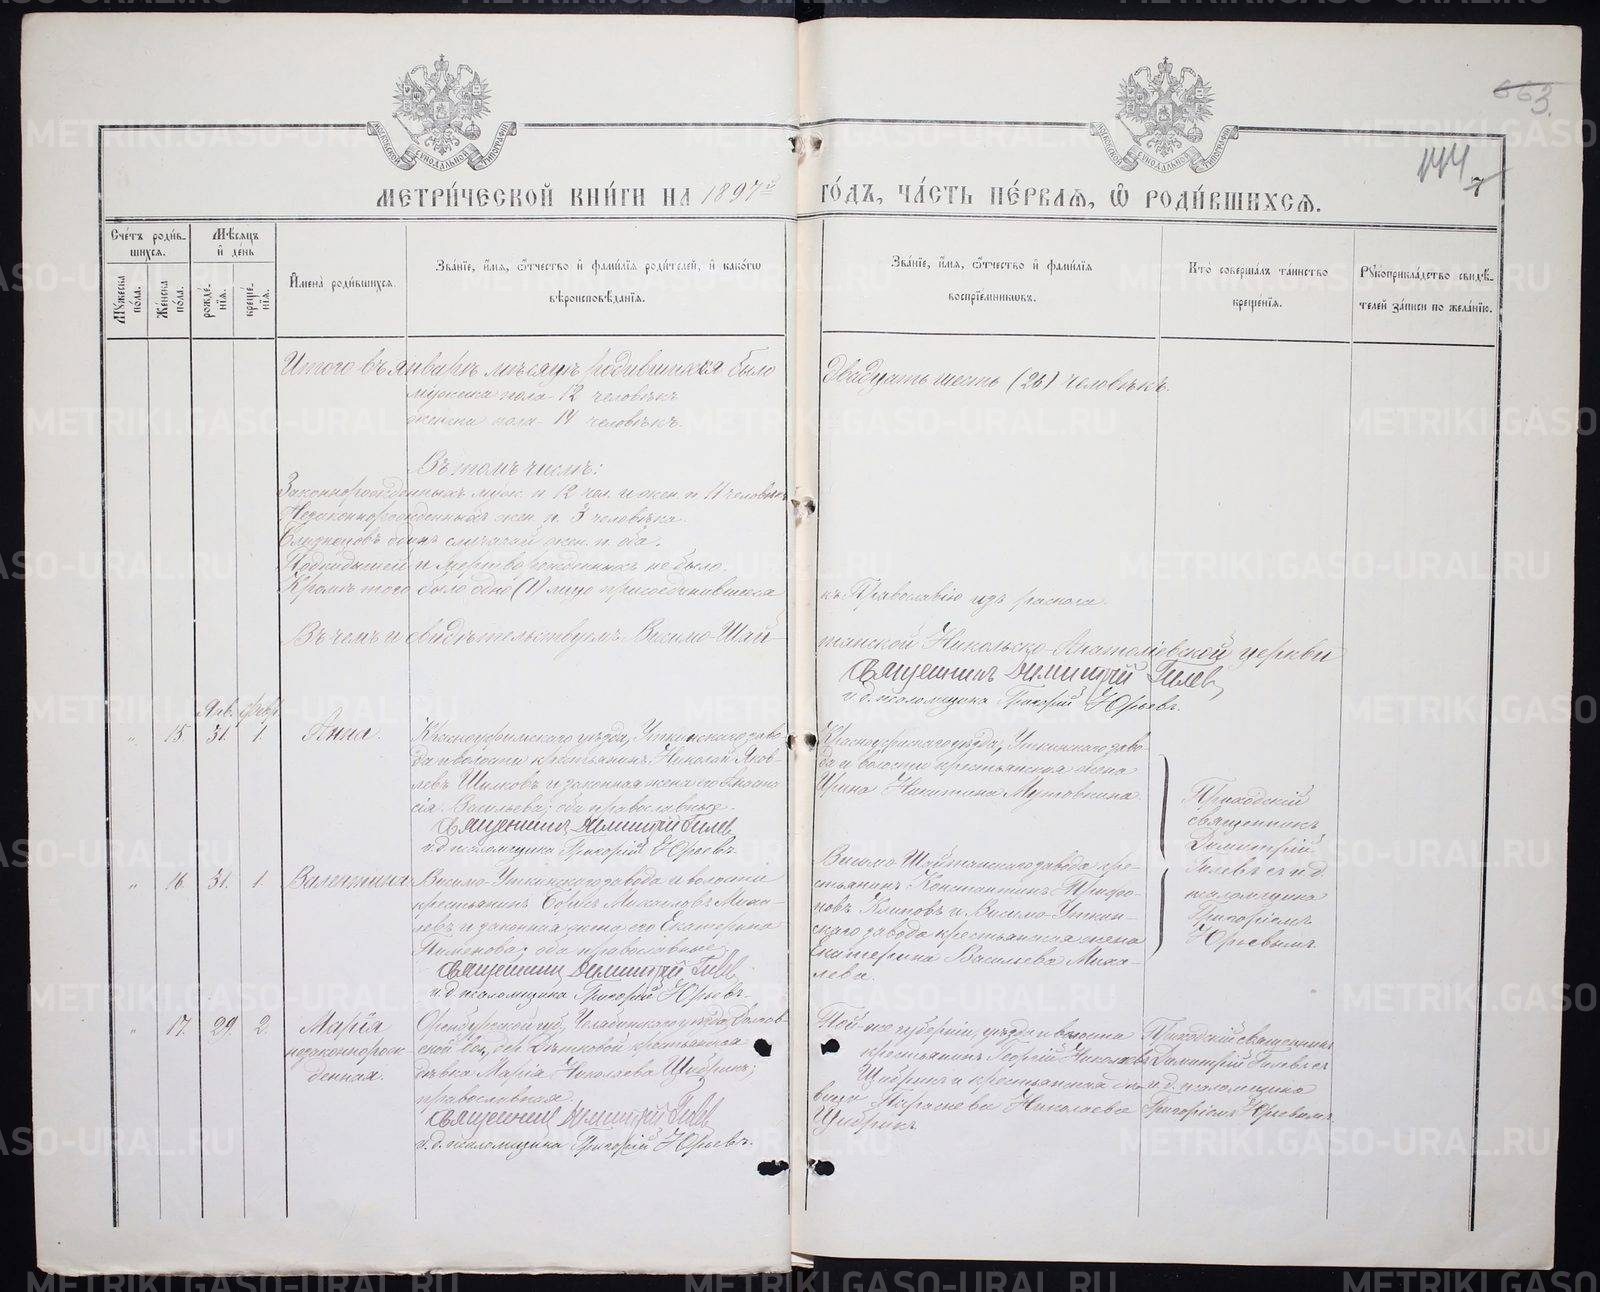 663.
144
7
МЕТРИ́ЧЕСКОЙ КНИ́ГИ НА 1897й ГО́ДЪ, ЧА́СТЬ ПЕ́РВАѦ, Ѽ РОДИ́ВШИХСѦ.
Сче́тъ роди́в-
шихся.
Мѣ́сяцъ
и де́нь
Мꙋ́жеска по́ла.
Же́нска по́ла.
рожде́-
нїѧ.
креще́-
нїѧ.
Имена̀ роди́вшихсѧ.
Зва́нїе, и́мѧ, ѻ҆́тчество и҆ фами́лїѧ роди́телей, и҆ како́гѡ
вѣроисповѣ́данїѧ.
Зва́нїе, и́мѧ, ѻ҆́тчество и҆ фами́лїѧ
воспрїе́мникѡвъ.
Кто̀ соверша́лъ та́инство
креще́нїѧ.
Рꙋкоприкла́дство свидѣ́-
телей за́писи по жела́нїю.
Итого въ Январѣ мѣсяцѣ родившихся было
двадцать шесть (26) человѣкъ.
мужска пола - 12 человѣкъ
женска пола - 14 человѣкъ.
Въ томъ числѣ:
Законнорожденныхъ муж. п. 12 чел. и жен. п. 11 человѣкъ
Незаконнорожденныхъ жен. п. 3 человѣка.
Близнецовъ одинъ случай жен. п. оба.
Подкидышей и мертворожденныхъ не было.
Кромѣ того было одно (1) лицо присоединившееся
къ Православію изъ раскола.
Въ чемъ и свидѣтельствуемъ Висимо-Шай-
танской Николаевско-Анатоліевской церкви
Священникъ Димитрій Гилевъ
и. д. псаломщика Григорій Юрьевъ.
Янв. Февр.
" 15. 31. 1. Анна.
Красноуфимскаго уѣзда, Уткинскаго заво-
да и волости крестьянинъ Николай Яков-
левъ Шилковъ и законная жена его Анаста
сія Васильева; оба православные.
Священникъ Димитрій Гилевъ
и. д. псаломщика Григорій Юрьевъ.
Красноуфимскаго уѣзда, Уткинскаго заво-
да и волости крестьянская жена
Ирина Никитина Мутовкина.
Приходскій
священникъ
Димитрій
Гилевъ съ и. д.
псаломщика
Григоріемъ
Юрьевымъ
" 16. 31. 1. Валентина
Висимо-Уткинскаго завода и волости
крестьянинъ Михаиловъ Миха-
левъ и законная жена его Екатерина
Пименова; оба православные.
Священникъ Димитрій Гилевъ
и. д. псаломщика Григорій Юрьевъ.
Висимо-Шайтанскаго завода кре-
стьянинъ Константинъ
Климовъ и Висимо-Уткин-
скаго завода крестьянская жена
Екатерина Васильева Миха-
лева.
" 17. 29. 2. Марія
незаконнорож-
денная.
Оренбургской губ., Челябинскаго уѣзда,
ской вол., дер. крестьянская
дѣвка Марія Николаева Щибрикъ;
православная.
Священникъ Димитрій Гилевъ
и. д. псаломщика Григорій Юрьевъ.
Той-же губерніи, уѣзда и волости
крестьянинъ Георгій Николаевъ
Щибрикъ и крестьянская
Параскева Николаева
Щибрикъ
Приходскій священникъ
Димитрій Гилевъ съ
и. д. псаломщика
Григоріемъ Юрьевымъ
METRIKI.GASO-URAL.RU